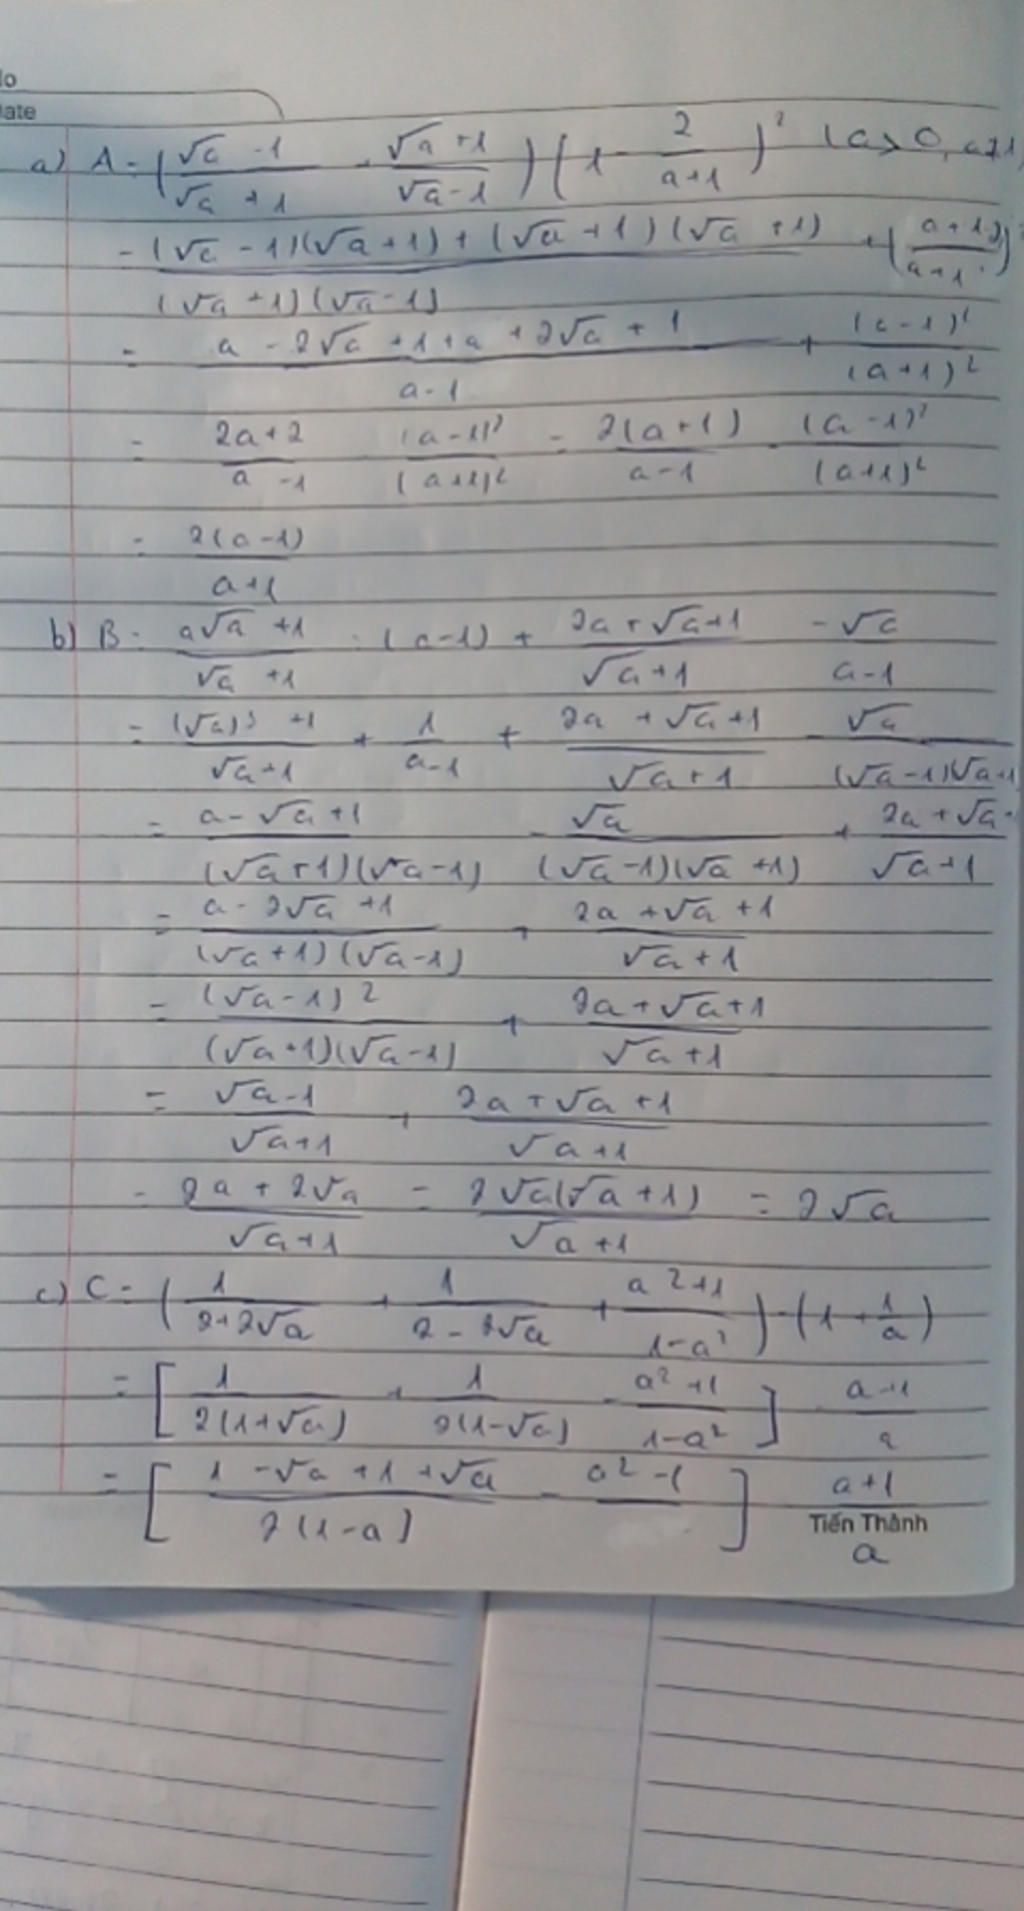 lo
ate
a) A = (√a - 1 / √a + 1 - √a + 1 / √a - 1) (1 - 2 / a+1)² (a > 0, a≠1)
= (√a - 1)(√a + 1) + (√a + 1)(√a + 1) / (√a + 1)(√a - 1) + (a + 1 - 2 / a + 1)²
= a - 2√a + 1 + a + 2√a + 1 / a - 1 + (a - 1)² / (a + 1)²
= 2a + 2 / a - 1 · (a - 1)² / (a + 1)² = 2(a + 1) / a - 1 · (a - 1)² / (a + 1)²
= 2(a - 1) / a + 1
b) B = a√a + 1 / √a + 1 : (a - 1) + 2a + √a + 1 / √a + 1 - √a / a - 1
= (√a)³ + 1 / √a + 1 + 1 / a - 1 + 2a + √a + 1 / √a + 1 - √a / (√a - 1)(√a + 1
= a - √a + 1 / (√a + 1)(√a - 1) - √a / (√a - 1)(√a + 1) + 2a + √a / √a + 1
= a - 2√a + 1 / (√a + 1)(√a - 1) + 2a + √a + 1 / √a + 1
= (√a - 1)² / (√a + 1)(√a - 1) + 2a + √a + 1 / √a + 1
= √a - 1 / √a + 1 + 2a + √a + 1 / √a + 1
= 2a + 2√a / √a + 1 = 2√a(√a + 1) / √a + 1 = 2√a
c) C = (1 / 2 + 2√a + 1 / 2 - 2√a + a² + 1 / 1 - a²) · (1 + 1 / a)
= [1 / 2(1 + √a) + 1 / 2(1 - √a) - a² + 1 / 1 - a²] a + 1 / a
= [1 - √a + 1 + √a / 2(1 - a) - a² - 1] a + 1 / a
Tiến Thành